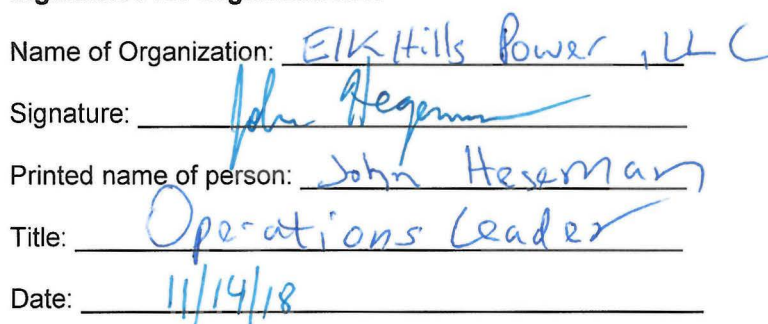 Name of Organization: Elk Hills Power, LLC
Signature: John Hegeman
Printed name of person: John Hegeman
Title: Operations Leader
Date: 11/14/18